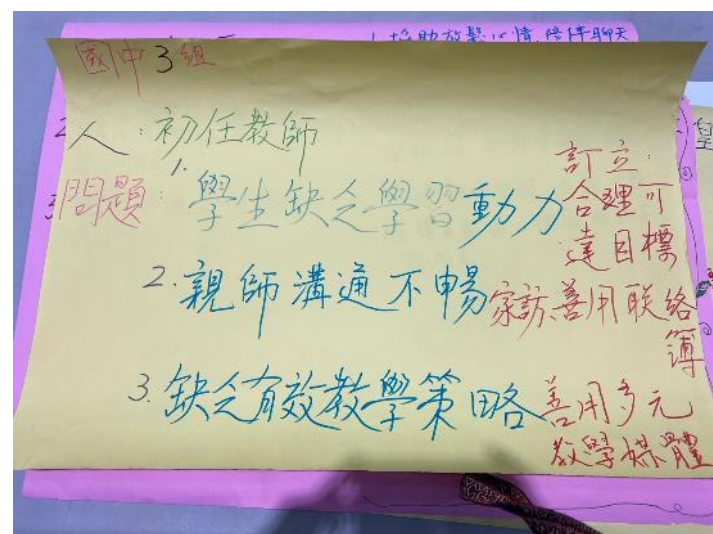 1. 協助放鬆心情,陪伴聊天
國中3組
人:初任教師
問題:1.學生缺乏學習動力
訂立:
合理可
達目標
2.親師溝通不暢
家訪、善用联络
簿
3.缺乏有效教學策略
善用多元
教學媒體